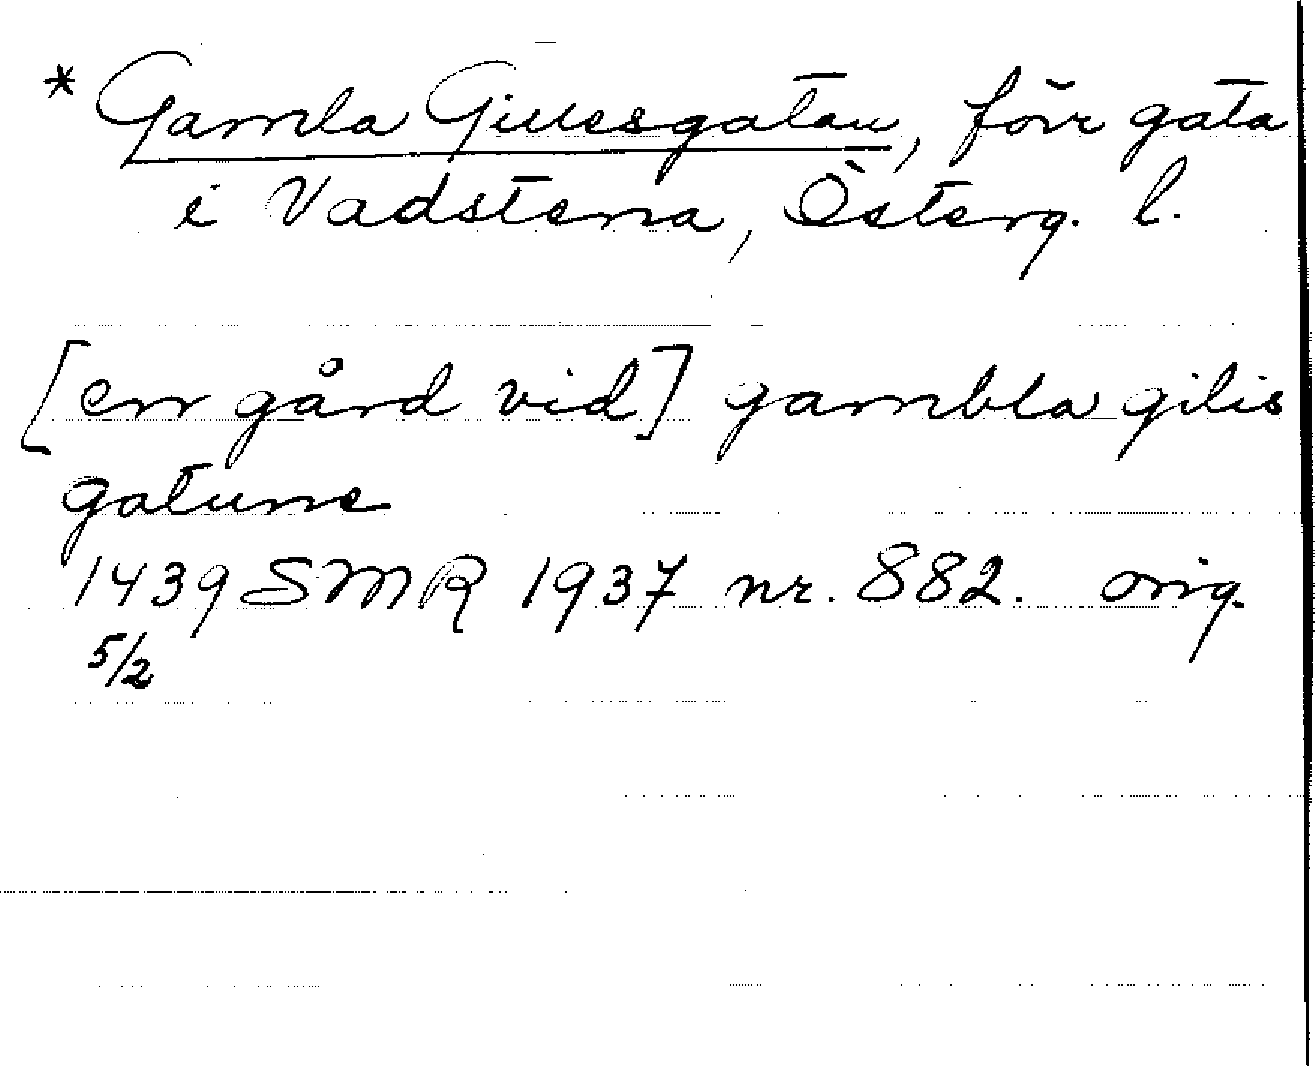 * Gamla Gillesgatan, förr gata
i Vadstena, Österg. l.
[en gård vid] gambla gilis
gatune
1439 SMR 1937 nr. 882. orig.
5/2